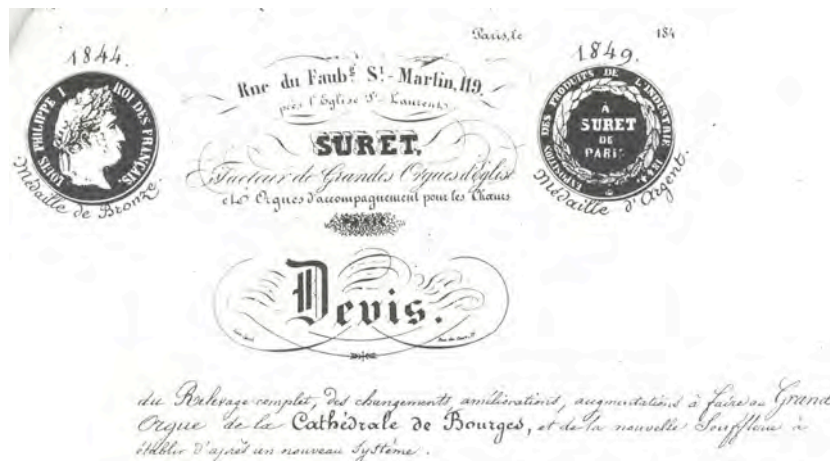 Paris, le 184
1844.
LOUIS PHILIPPE I ROI DES FRANÇAIS.
Médaille de Bronze.
Rue du Faubg. St.-Martin, 119.
près l'Eglise St. Laurent
SURET.
Facteur de Grandes Orgues d'église
et Orgues d'accompagnement pour les Chœurs
PARIS
1849.
EXPOSITION DES PRODUITS DE L'INDUSTRIE 1849
A
SURET
DE
PARIS
Médaille d'Argent.
Devis.
du Relevage complet, des changements, améliorations, augmentations à faire au Grand
Orgue de la Cathédrale de Bourges, et de la nouvelle Soufflerie à
établir d'après un nouveau Système.